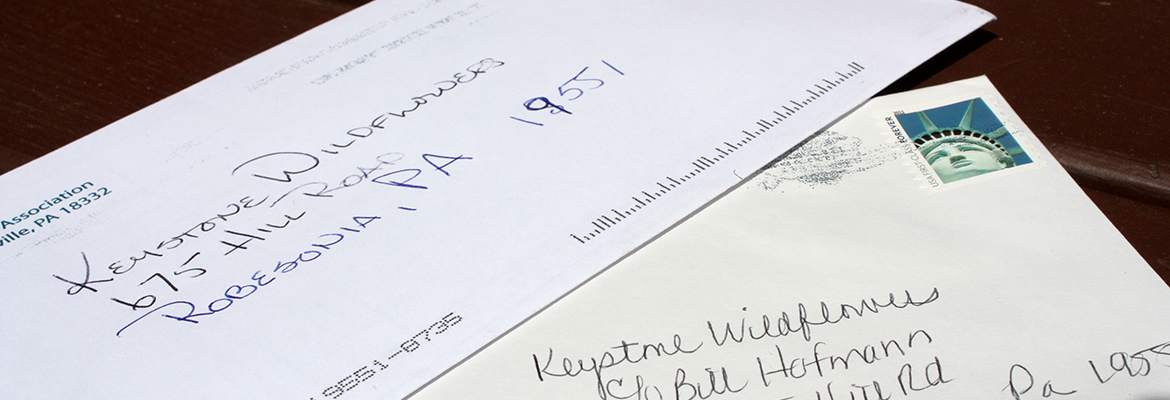 Association
ville, PA 18332
KEYSTONE WILDFLOWERS
675 HILL ROAD
ROBESONIA, PA 19551
19551-8735
USA FIRST-CLASS FOREVER
Keystone Wildflowers
C/o Bill Hofmann
Hill Rd
Pa 1955